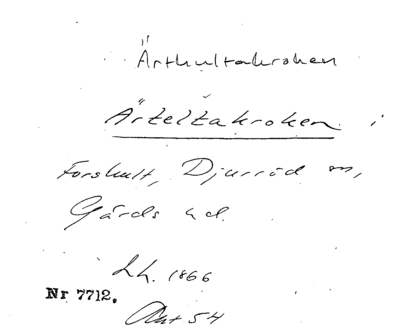 Ärthultakroken
Ärteltakroken i
Forshult, Djurröd sn,
Gärds hd.
Lh. 1866
Nr 7712.
Akt 54